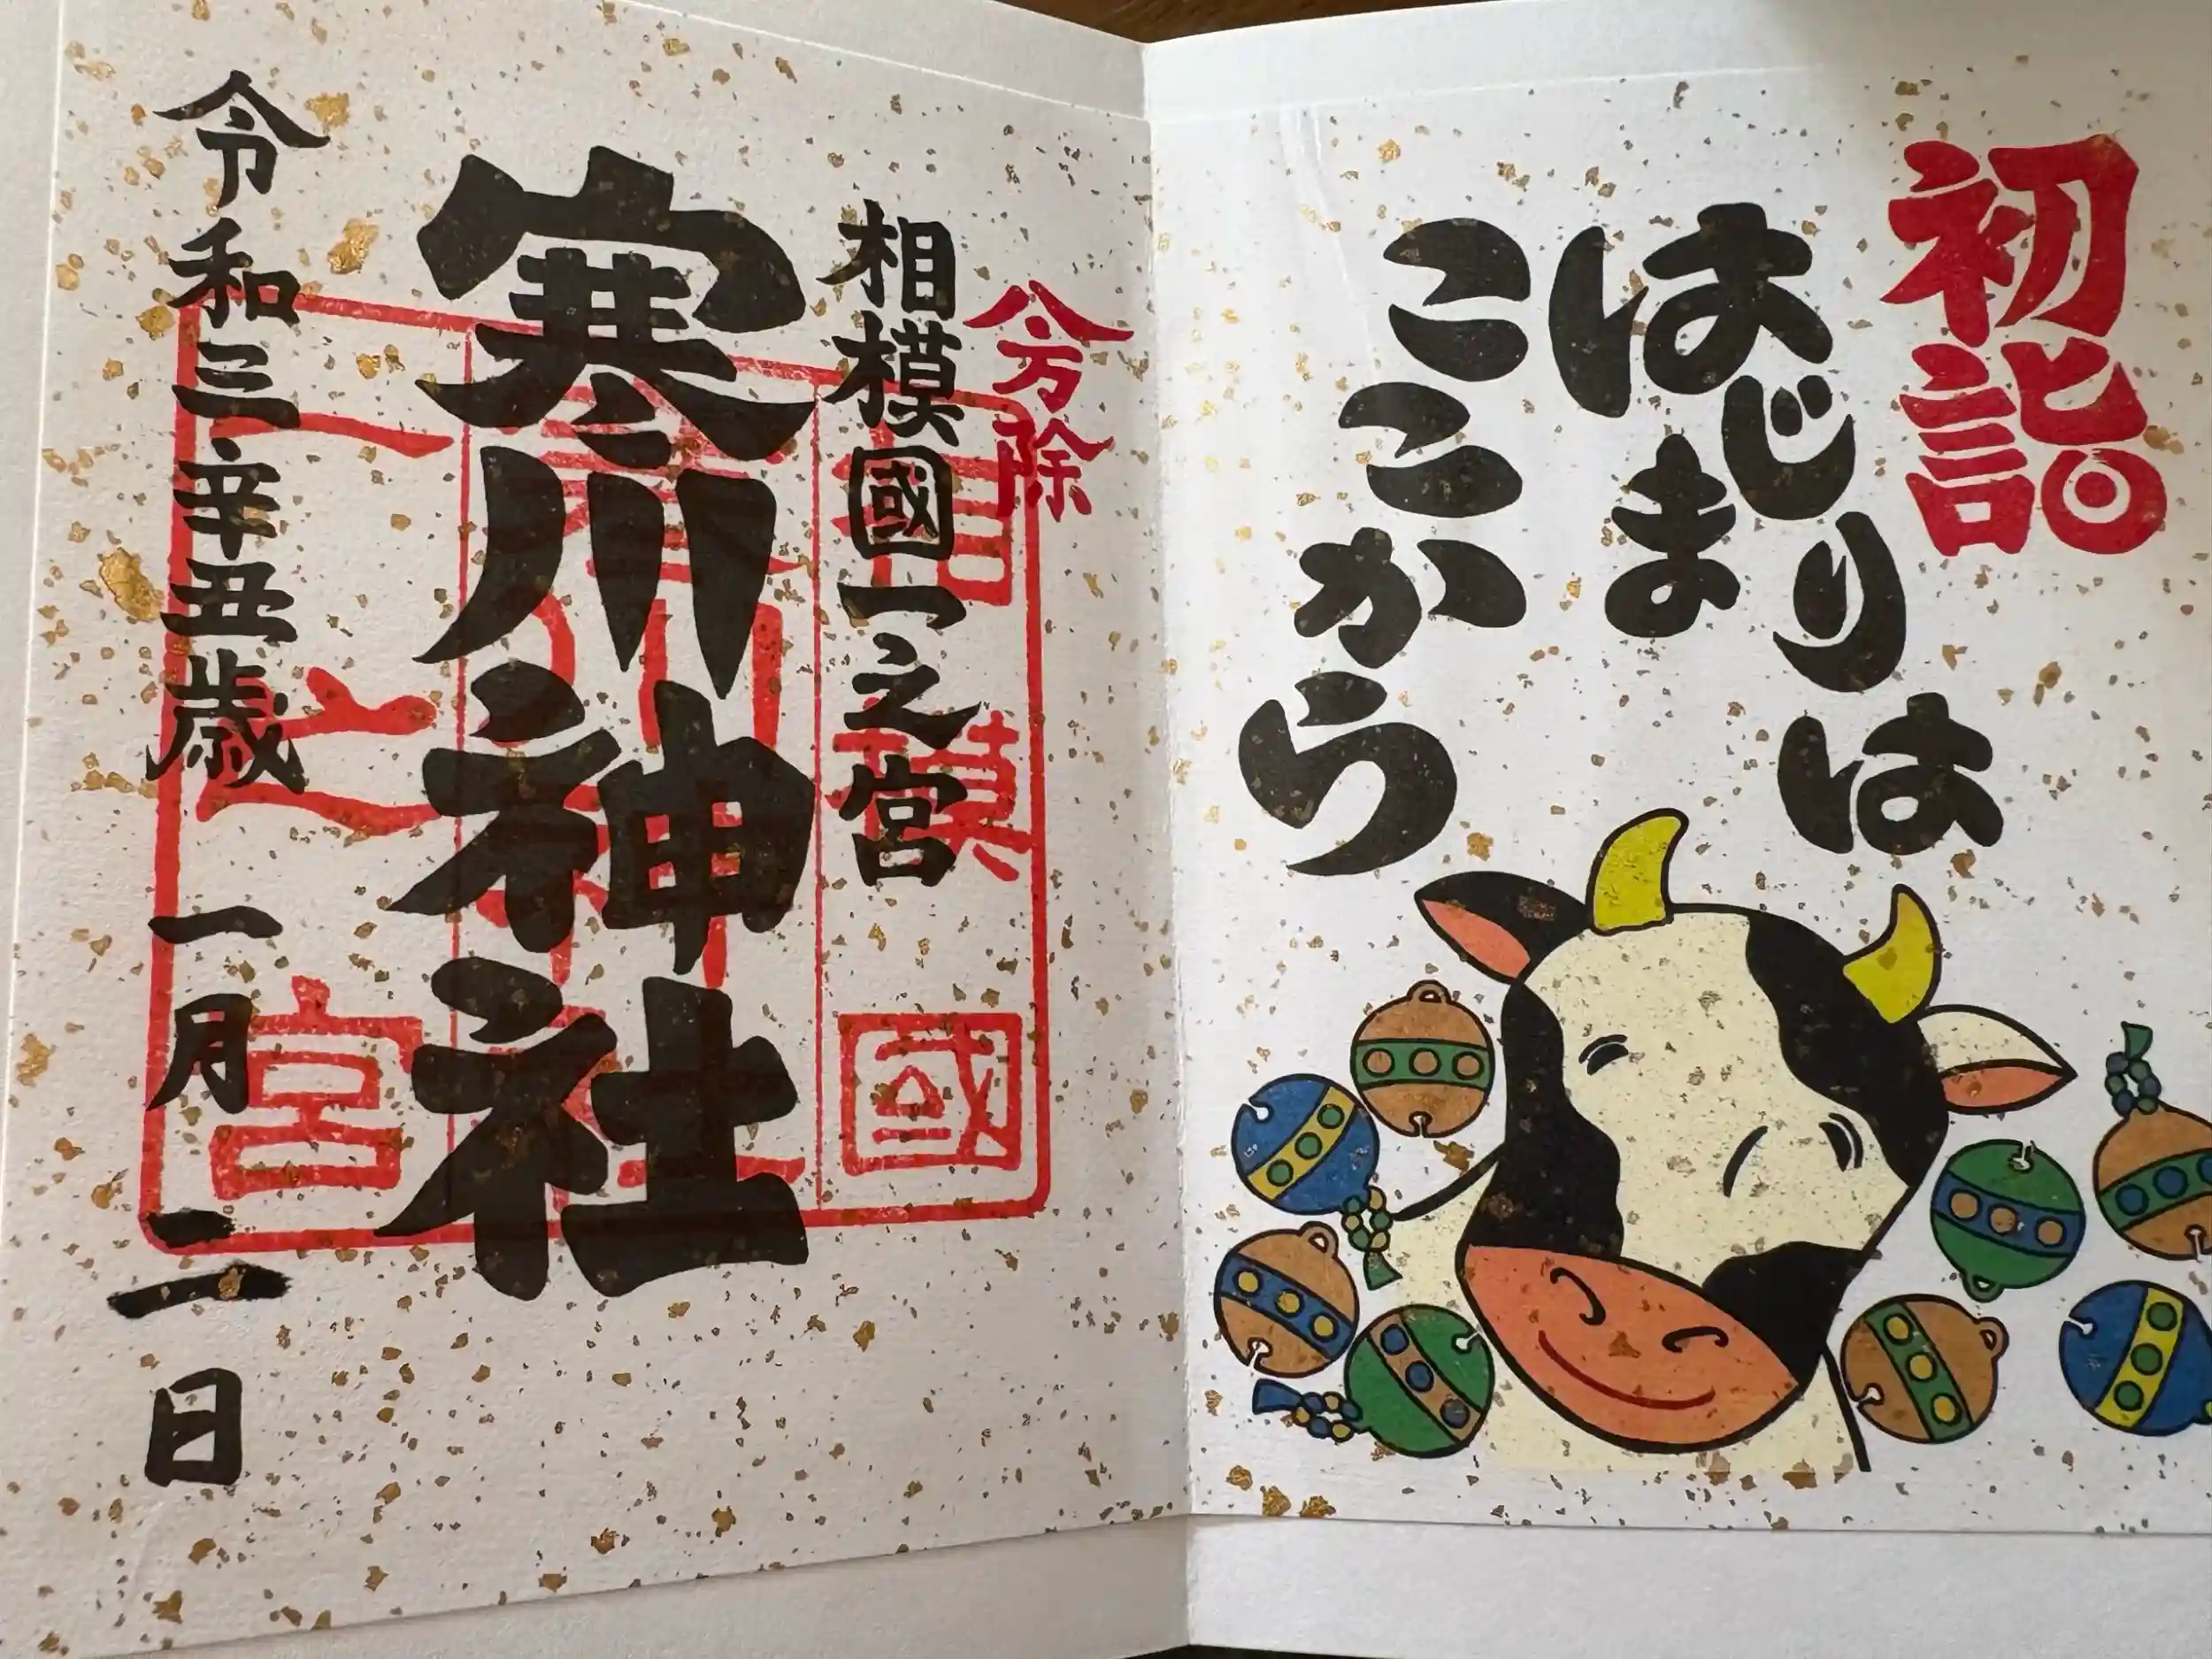 初詣
はじまりは
ここから
八方除
相模國一之宮
寒川神社
令和三辛丑歳 一月二日
相模國
寒川神社
一之宮